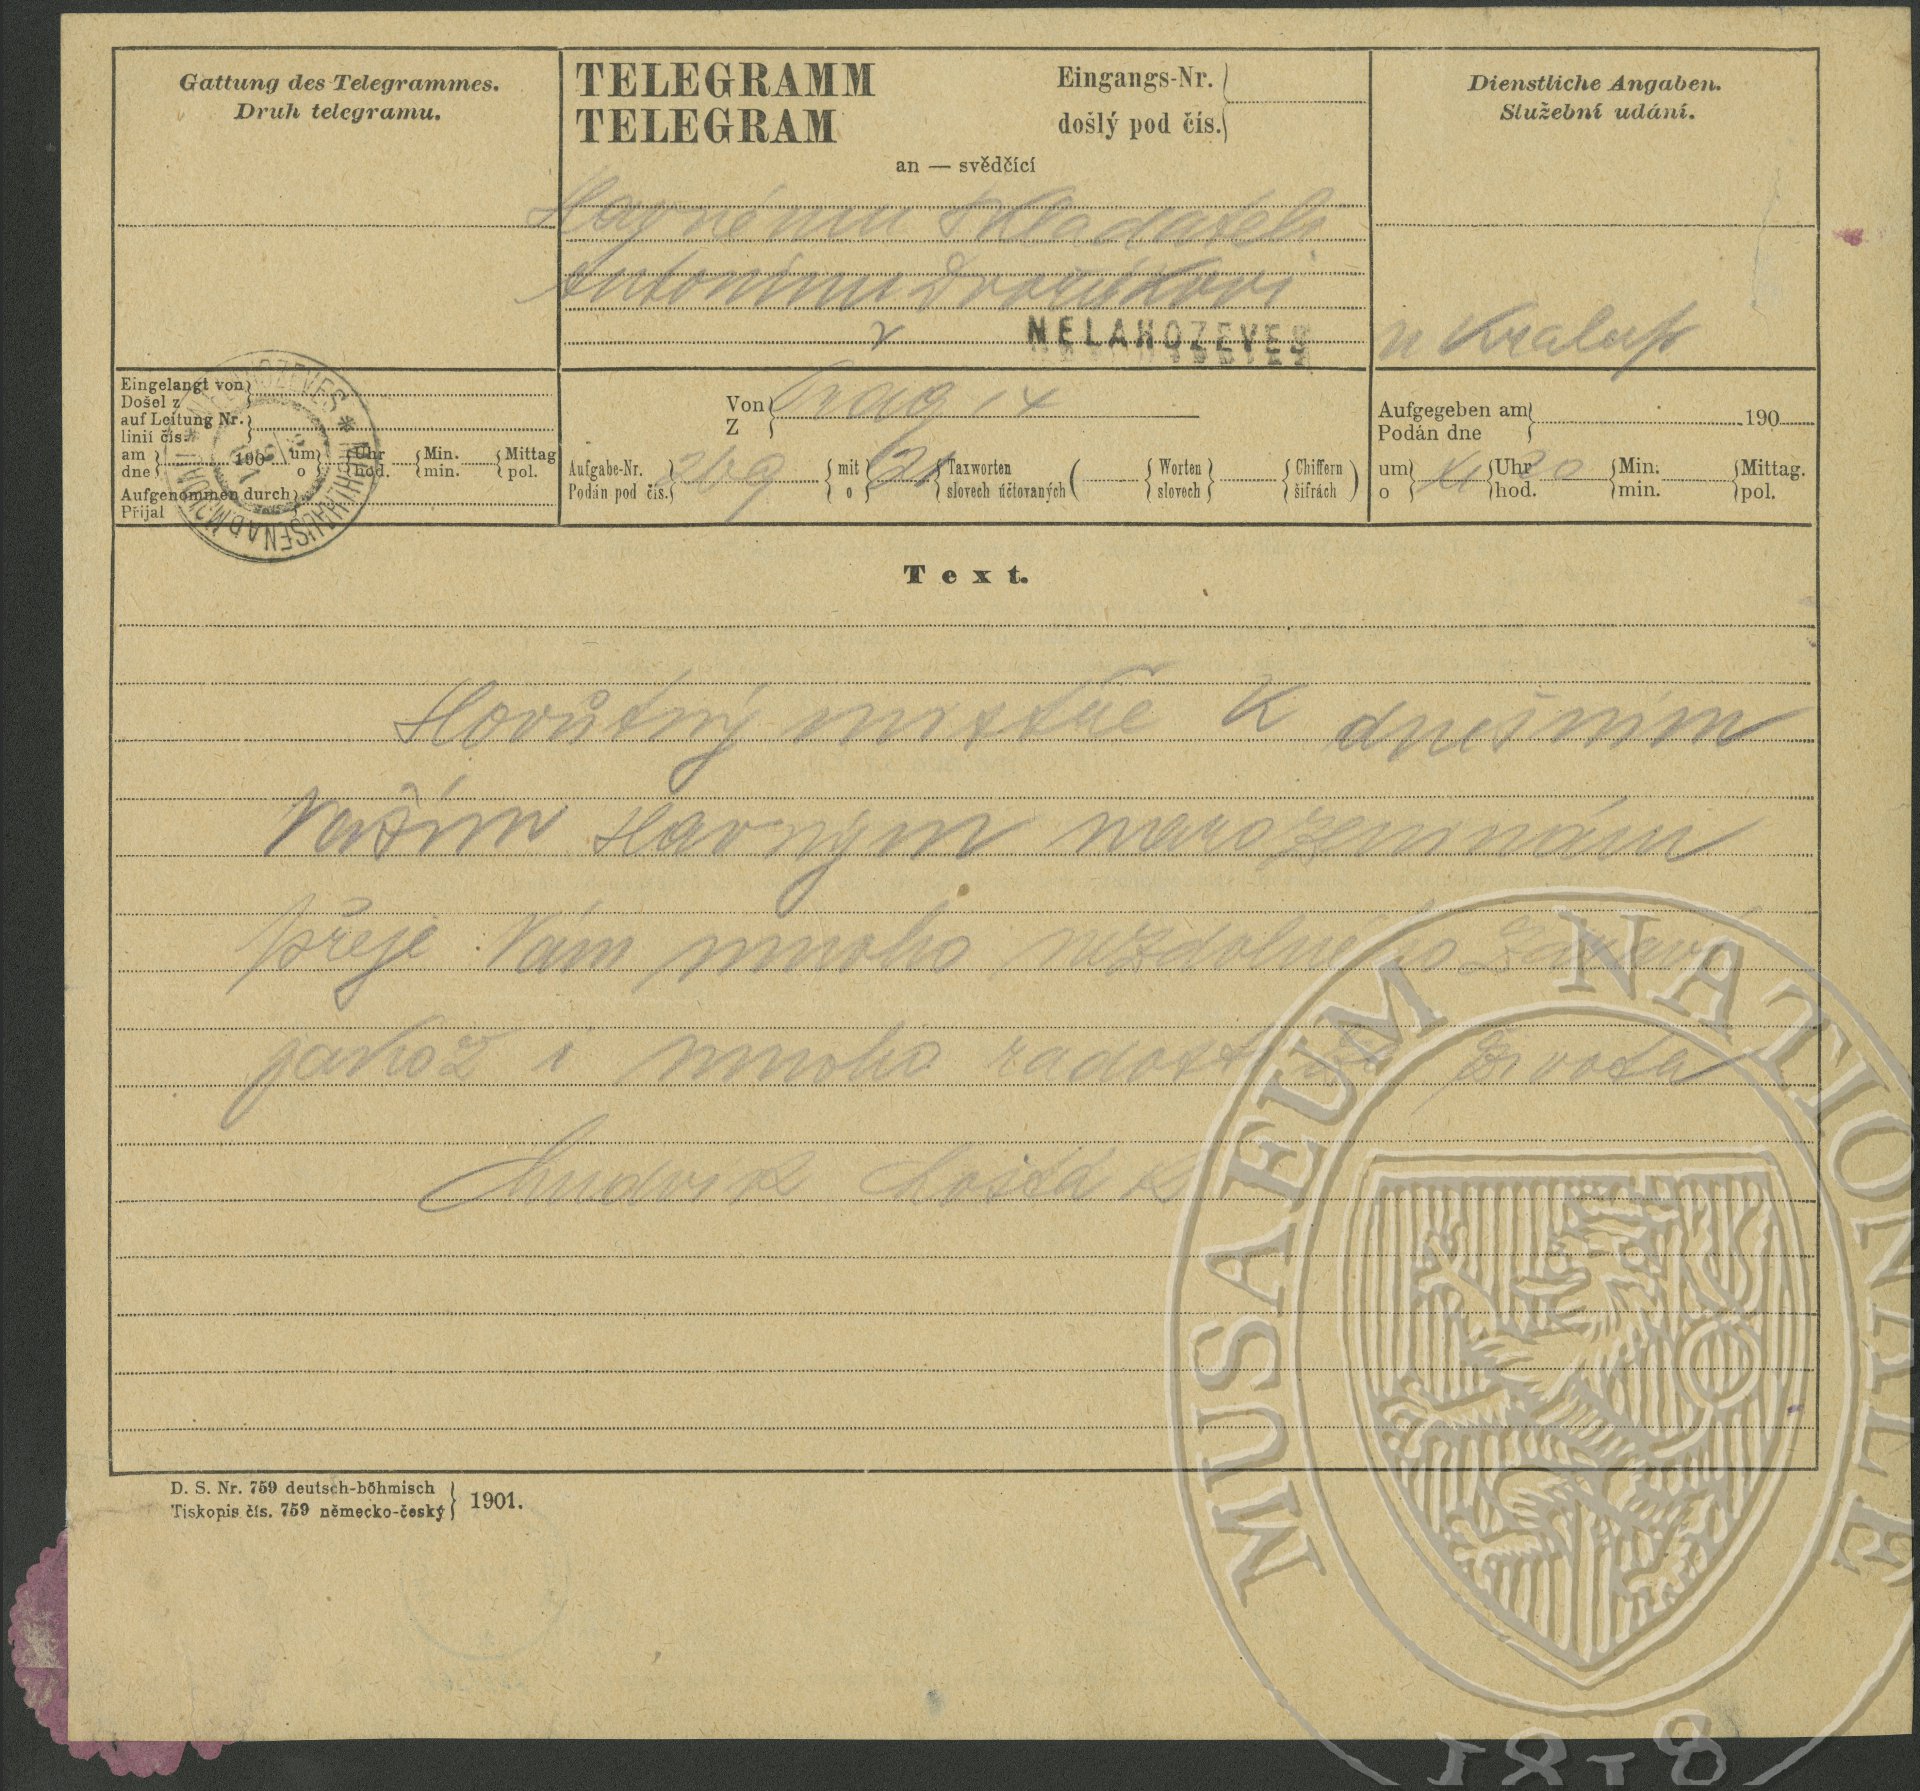 Gattung des Telegrammes.
Druh telegramu.
TELEGRAMM
TELEGRAM
Eingangs-Nr.
došlý pod čís.
an — svědčící
Dienstliche Angaben.
Služební udání.
Slavnému skladateli
Antonínu Dvořákovi
v NELAHOZEVES u Kralup
Eingelangt von
Došel z
auf Leitung Nr.
linií čís.
am 190 um Uhr Min. Mittag
dne o hod. min. pol.
Aufgenommen durch
Přijal
NELAHOZEVES * MÜHLHAUSEN A.D. MOLDAU *
Von Prag 14
Z
Aufgabe-Nr. mit 21 Taxworten ( Worten Chiffern )
Podán pod čís. o slovech účtovaných slovech šifrách
Aufgegeben am 190
Podán dne
um Uhr 20 Min. Mittag.
o hod. min. pol.
Text.
mistře K dnešním
Vašim slavným narozeninám
přeje Vám mnoho nezdolného zdraví
jakož i mnoho radosti ze života
Ludvik Lošťák
D. S. Nr. 759 deutsch-böhmisch
Tiskopis čís. 759 německo-český 1901.
MUSAEUM NATIONALE
1818